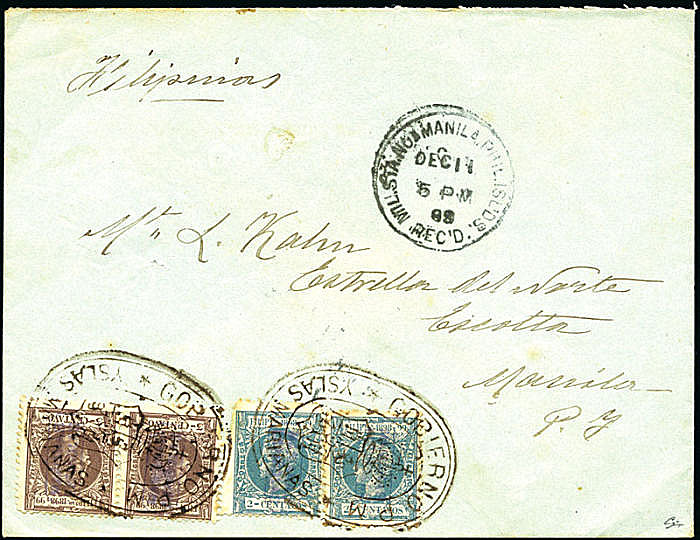 Filipinas
MIL. STA. NO. 1 MANILA, PHIL. ISL'DS.
DEC 11
5 PM
99
REC'D.
Mr. L. Kahn
Estrella del Norte
Escolta
Manila
P. I
GOBIERNO P. M. YSLAS MARIANAS
GOBIERNO P. M. YSLAS MARIANAS
FILIPINAS 1898 Y 99
5 CENTAVOS
2 CENTAVOS
2 CENTAVOS